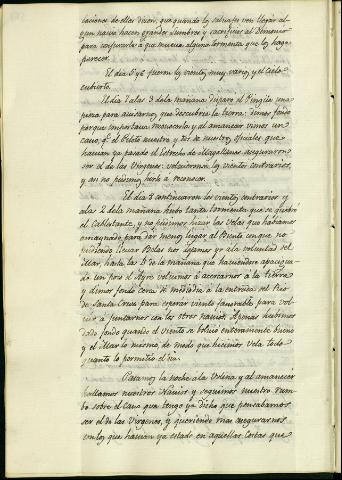 ciones de ellos dicen, que quando los salvajes ven llegar al-
gun navio hacen grandes lumbres y sacrificios al Demonio
para conjurarle á que mueva alguna tormenta que los haga
perecer.
El dia 5 y 6 fueron los vientos muy varios, y el Cielo
cubierto.
El dia 7 á las 3 de la mañana disparo el Pingüe una
pieza para avisarnos, que descubria la tierra: dimos fondo
porque importava reconocerla y al amanecer vimos un
cavo, qe. el Piloto nuestro y dos de nuestros oficiales que
havian ya pasado el Estrecho de Magallanes aseguraron
ser el de las Virgenes: volvieronse los vientos contrarios,
y asi no pudimos irle á reconocer.
El dia 8 continuaron los vientos contrarios y
á las 2 de la mañana hubo tanta tormenta que se quebró
el Cablestante, y no pudimos hacer las velas que habiamos
amaynado para dar menos lugar al Viento con que no
pudiendo llevar Bolas nos dejamos ir á la voluntad del
Mar, hasta las 9 de la mañana que haviendose apacigua-
do un poco el Ayre volvimos á acercarnos á la tierra
y dimos fondo cerca de mediodia á la entrada del Rio
de Santa Cruz para esperar viento favorable para vol-
ver á juntarnos con los otros navios. Apenas huvimos
dado fondo quando el Viento se bolvió enteramente bueno
y el Mar lo mismo, de modo que hicimos Vela todo
quanto lo permitio el dia.
Pasamos la noche á la Bolina y al amanecer
hallamos nuestros Navios y seguimos nuestro rum-
bo sobre el Cavo que tengo ya dicho que pensabamos
ser el de las Virgenes, y queriendo mas asegurarnos
unos, que havian ya estado en aquellas Costas que